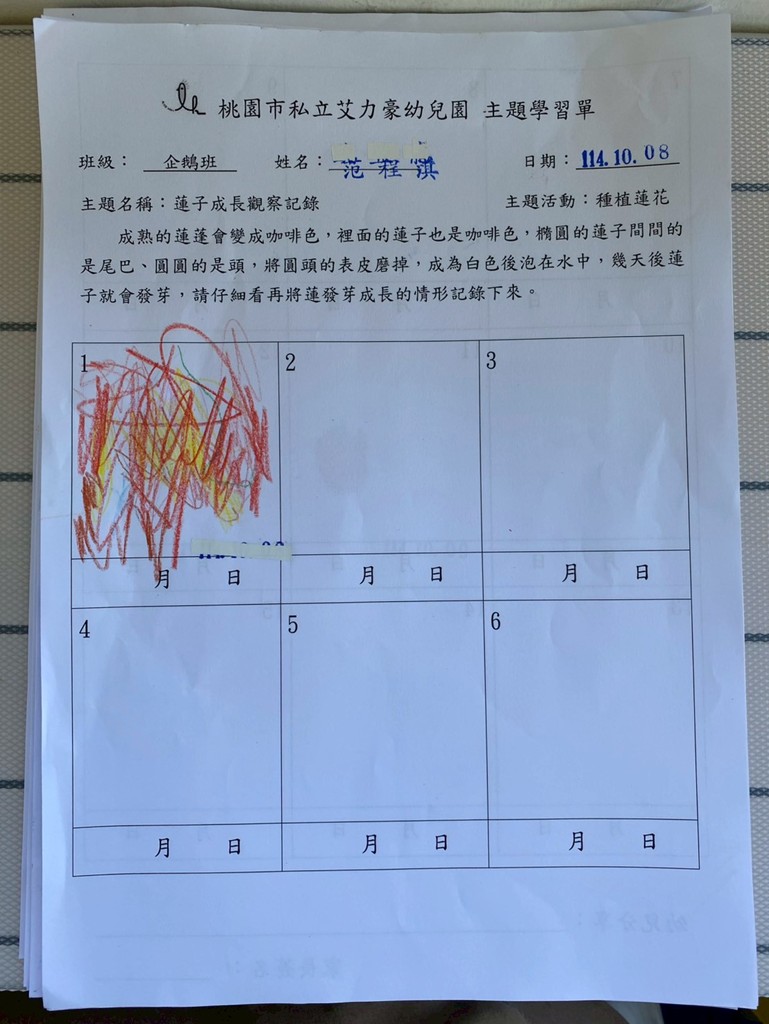 桃園市私立艾力豪幼兒園 主題學習單
班級： 企鵝班 姓名： 范程淇 日期： 114.10.08
主題名稱：蓮子成長觀察記錄 主題活動：種植蓮花
成熟的蓮蓬會變成咖啡色，裡面的蓮子也是咖啡色，橢圓的蓮子間間的
是尾巴、圓圓的是頭，將圓頭的表皮磨掉，成為白色後泡在水中，幾天後蓮
子就會發芽，請仔細看再將蓮發芽成長的情形記錄下來。
1 2 3
月 日 月 日 月 日
4 5 6
月 日 月 日 月 日